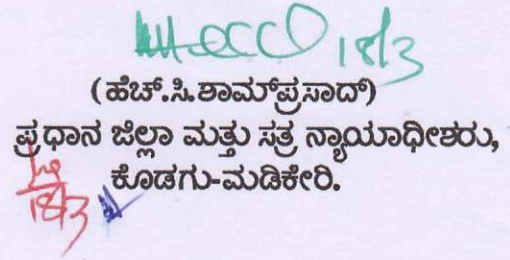 18/3
(ಹೆಚ್.ಸಿ.ಶಾಮ್‌ಪ್ರಸಾದ್)
ಪ್ರಧಾನ ಜಿಲ್ಲಾ ಮತ್ತು ಸತ್ರ ನ್ಯಾಯಾಧೀಶರು,
ಕೊಡಗು-ಮಡಿಕೇರಿ.
18/3